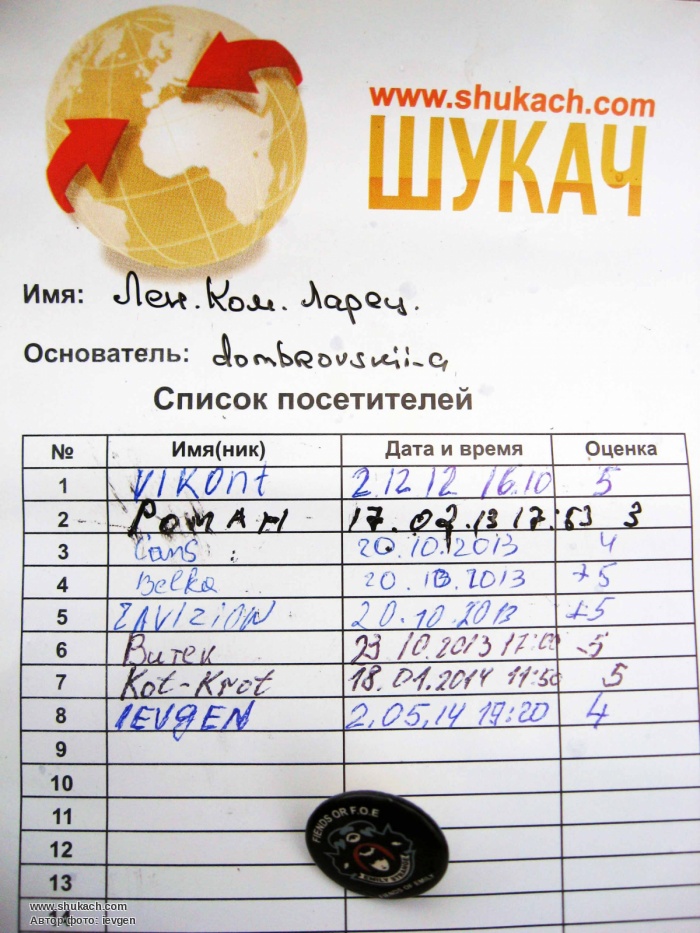 www.shukach.com
ШУКАЧ
Имя: Лен. Ком. Ларец.
Основатель: dombrovskii-a
Список посетителей
№ Имя(ник) Дата и время Оценка
1 VIKOnt 2.12 12 16.10 5
2 РОМАН 17.02.13 17:53 3
3 20.10.2013 4
4 Belka 20.10.2013 +5
5 ZAVIZION 20.10.2013 +5
6 Витек 23 10.2013 17:00 -5
7 Kot-Krot 18.01.2014 11:50 5
8 IEVGEN 2.05.14 19:20 4
9
10
11
12
13
14
FIENDS OR F.O.E
www.shukach.com
Автор фото: ievgen